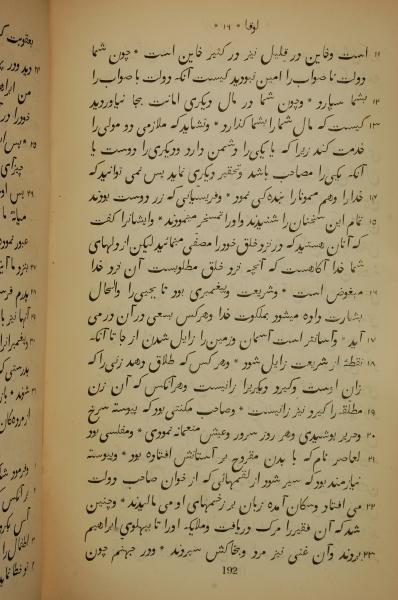 لوقا * ۱۶ *
۱۱ است وخاین در قلیل نیز در کثیر خاین است * چون شما
دولت ناصواب را امین نبودید کیست آنکه دولت باصواب را
۱۲ بشما سپارد * وچون شما در مال دیگری امانت بجا نیاوردید
۱۳ کیست که مال شما را بشما گذارد * ونشاید که ملازمی دو مولی را
خدمت کند زیرا که یا یکی را دشمن دارد ودیگری را دوست یا
آنکه یکی را مصاحب باشد وتحقیر دیگری نماید پس نمی توانید که
۱۴ خدا را وهم ممونا را بندگی نمود * وفریسیانی که زر دوست بودند
۱۵ تمام این سخنان را شنیدند واورا تمسخر مینمودند * وایشانرا گفت
که آنان هستید که در نزد خلق خود را مصفی مینمائید لیکن از دلهای
شما خدا آگاهست که آنچه نزد خلق مطلوبست آن نزد خدا
۱۶ مبغوض است * وشریعت وپیغمبری بود تا یحیی را والحال
بشارت داده میشود بملکوت خدا وهرکس بسعی در آن در می
۱۷ آید * وآسانتر است آسمان وزمین را زایل شدن از جا تا آنکه
۱۸ نقطهٔ از شریعت زایل شود * وهر کس که طلاق دهد زنی را که
زان اوست وگیرد دیگریرا زانیست وهرآنکس که آن زن
۱۹ مطلقه را گیرد نیز زانیست * وصاحب مکنتی بود که پیوسته سرخ
۲۰ وحریر پوشیدی وهر روز سرور وعیش منعمانه نمودی * ومفلسی بود
۲۱ لعاصر نام که با بدن مقروح بر آستانش افتاده بود * وپیوسته
نیازمند بود که سیر شود از لقمهائی که از خوان صاحب دولت
۲۲ می افتاد وسکان آمده زبان بر زخمهای او می مالیدند * وچنین
شد که آن فقیر را مرک دریافت وملایکه اورا تا بپهلوی ابراهیم
۲۳ بردند وآن غنی نیز مرد وبخاکش سپردند * ودر جهنم چون
192